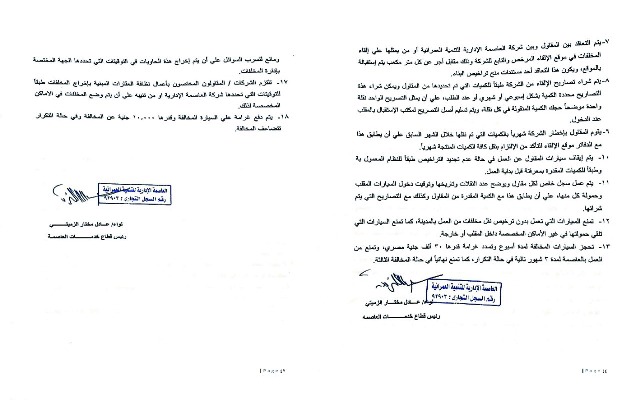 ٧- يتم التعاقد بين المقاول وبين شركة العاصمة الإدارية للتنمية العمرانية أو من يمثلها علي إلقاء
المخلفات في موقع الإلقاء المرخص والتابع للشركة وذلك مقابل أجر عن كل متر مكعب يتم إستقباله
بالموقع، ويكون هذا التعاقد أحد مستندات منح تراخيص البناء.
٨- يتم شراء تصاريح الإلقاء من الشركة طبقاً للكميات التي تم تحديدها من المقاول ويمكن شراء هذه
التصاريح محددة الكمية بشكل إسبوعي أو شهري أو عند الطلب، علي أن يمثل التصريح الواحد نقلة
واحدة موضحاً حجم الكمية المنقولة في كل نقلة، ويتم تسليم أصل التصريح لمكتب الإستقبال بالمقلب
عند الدخول.
٩- يقوم المقاول بإخطار الشركة شهرياً بالكميات التي تم نقلها خلال الشهر السابق علي أن يطابق هذا
مع الدفاتر موقع الإلقاء للتأكد من الإلتزام بنقل كافة الكميات المنتجة شهرياً.
١٠- يتم إيقاف سيارات المقاول عن العمل في حالة عدم تجديد التراخيص طبقاً للنظام المعمول به
وطبقاً للكميات المقدرة بمعرفتة قبل بداية العمل.
١١- يتم عمل سجل خاص لكل مقاول ويوضح عدد النقلات وتاريخها وتوقيت دخول السيارات المقلب
وحمولة كل منها، علي أن يطابق هذا مع الكمية المقدرة من المقاول وكذلك مع التصاريح التي يتم
شرائها.
١٢- تمنع السيارات التي تعمل بدون ترخيص نقل مخلفات من العمل بالمدينة، كما تمنع السيارات التي
تلقي حمولتها في غير الأماكن المخصصة داخل المقلب أو خارجة.
١٣- تحجز السيارات المخالفة لمدة أسبوع وتسدد غرامة قدرها ٣٠ ألف جنية مصري، وتمنع من
العمل بالعاصمة لمدة ٣ شهور تالية في حالة التكرار، كما تمنع نهائياً في حالة المخالفة الثالثة.
العاصمة الإدارية للتنمية العمرانية
رقم السجل التجاري: ٩٣٩٠٣
لواء/ عادل مختار الزميتي
رئيس قطاع خدمات العاصمه
ومانع لتسرب السوائل علي أن يتم إخراج هذة الحاويات في التوقيتات التي تحددها الجهة المختصة
بإدارة المخلفات.
١٧- تلتزم الشركات / المقاولون المختصون بأعمال نظافة المنشآت المبنية بإخراج المخلفات طبقاً
للتوقيتات التي تحددها شركة العاصمة الإدارية او من تنيبه علي أن يتم وضع المخلفات في الأماكن
المخصصة لذلك.
١٨- يتم دفع غرامة علي السيارة المخالفة وقدرها ١٠,٠٠٠ جنية عن المخالفة وفي حالة التكرار
تتضاعف المخالفة.
العاصمة الإدارية للتنمية العمرانية
رقم السجل التجاري: ٩٣٩٠٣
لواء/ عادل مختار الزميتي
رئيس قطاع خدمات العاصمة